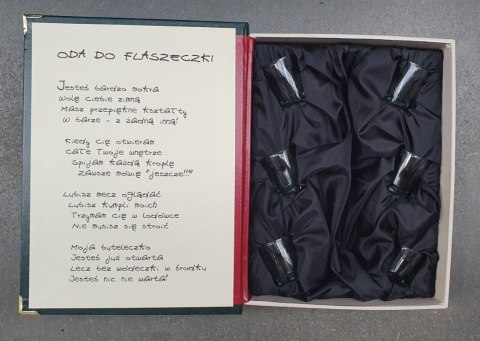 ODA DO FLASZECZKI
Jesteś bardzo mokra
Wolę ciebie zimną
Masz przepiękne kształty
W barze - z żadną inną!
Kiedy cię otwieram
Całe Twoje wnętrze
Spijam każdą kroplę
Zawsze mówię "jeszcze!!!"
Lubisz mecz oglądać
Lubisz kumpli moich
Trzymam cię w lodówce
Nie musisz się stroić
Moja buteleczko
Jesteś już otwarta
Lecz bez wódeczki w środku
Jesteś nic nie warta!